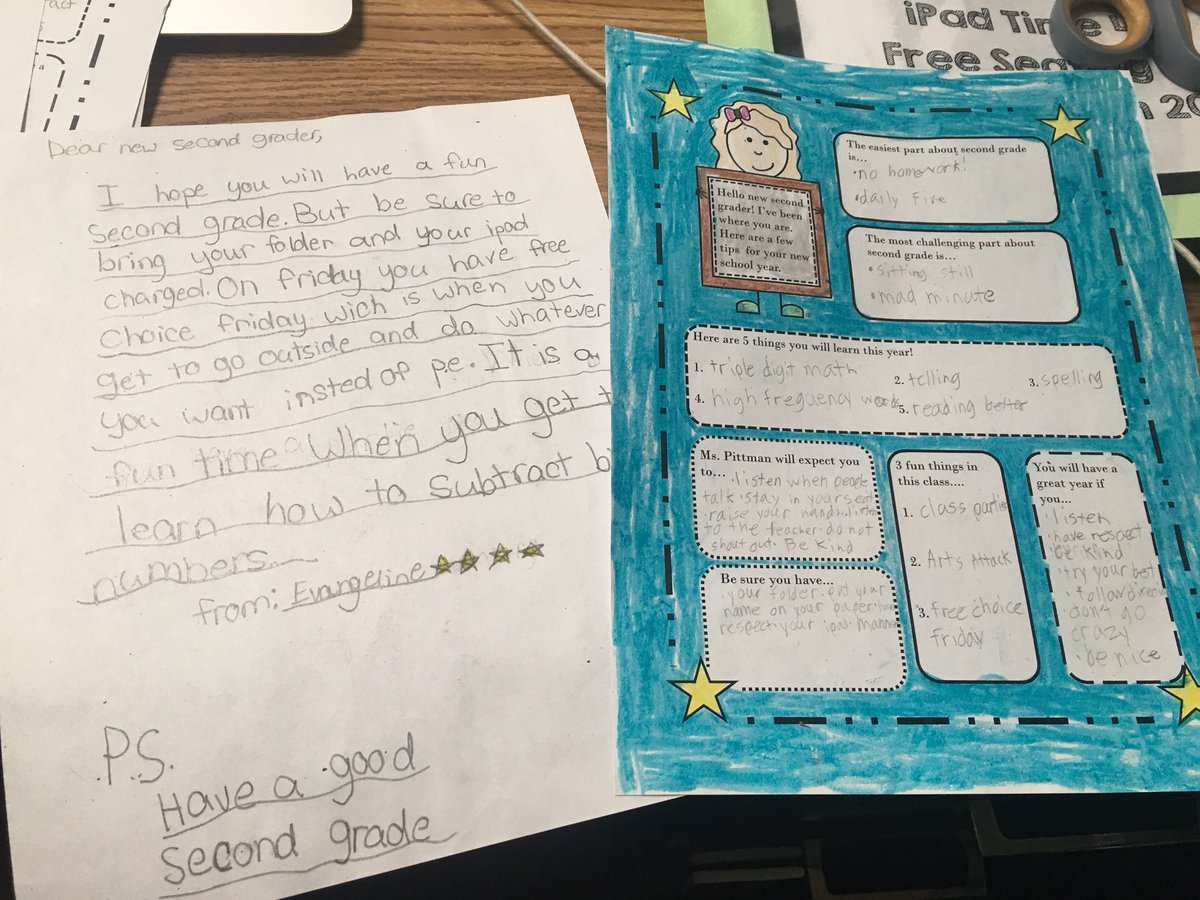 Dear new second grader,
I hope you will have a fun
second grade. But be sure to
bring your folder and your ipad
charged. On friday you have free
choice friday wich is when you
get to go outside and do whatever
you want insted of p.e. It is a
fun time When you get
learn how to subtract
numbers.
from: Evangeline
P.S.
Have a good
second grade
iPad Time
Free
Hello new second
grader! I've been
where you are.
Here are a few
tips for your new
school year.
The easiest part about second grade
is...
•no homework!
•daily Five
The most challenging part about
second grade is...
•sitting still
•mad minute
Here are 5 things you will learn this year!
1. triple digit math 2. telling 3. spelling
4. high frequency words 5. reading better
Ms. Pittman will expect you
to...
•listen when people
talk•stay in your seat
•raise your hands•listen
to the teacher•do not
shout out•Be kind
Be sure you have...
•your folder•put your
name on your paper•have
respect•your ipad•manners
3 fun things in
this class....
1. class parties
2. Arts Attack
3. free choice
friday
You will have a
great year if
you...
•listen
•have respect
•be kind
•try your best
•follow
•don't go
crazy
•be nice